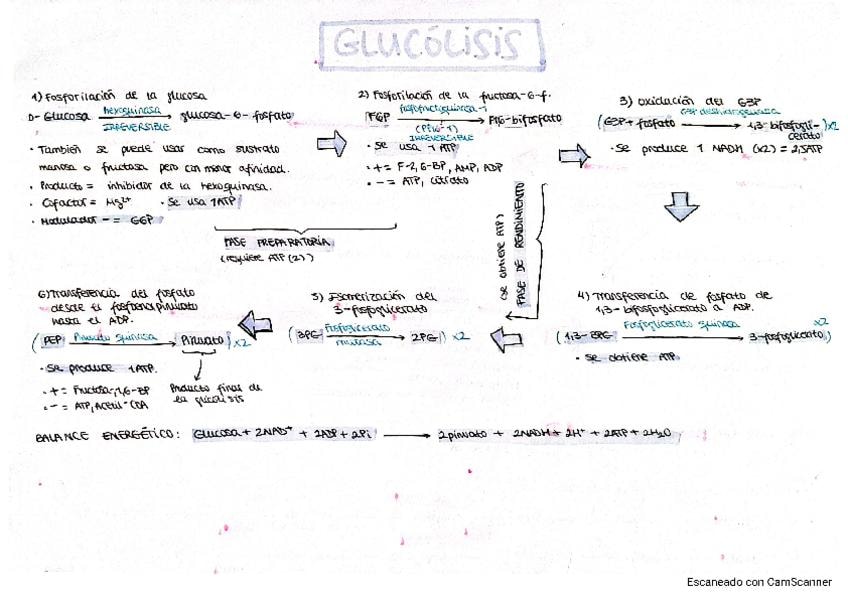 GLUCÓLISIS
1) Fosforilación de la glucosa
D-Glucosa hexoquinasa glucosa-6-fosfato
IRREVERSIBLE
• También se puede usar como sustrato
manosa o fructosa pero con menor afinidad.
• Producto = inhibidor de la hexoquinasa.
• Cofactor = Mg2+ • Se usa 1ATP
• Modulador - = G6P
2) Fosforilación de la fructosa-6-f.
F6P fosfofructoquinasa-1 F1,6-bifosfato
(PFK-1)
IRREVERSIBLE
• Se usa 1 ATP
• + = F-2,6-BP, AMP, ADP
• - = ATP, citrato
FASE PREPARATORIA
(requiere ATP (2))
3) Oxidación del G3P
(G3P + fosfato G3P deshidrogenasa 1,3-bifosfogli-
cerato) x2
• Se produce 1 NADH (x2) = 2,5ATP
(se obtiene ATP)
FASE DE RENDIMIENTO
4) Transferencia de fosfato de
1,3-bifosfoglicerato a ADP.
(1,3-BPG Fosfoglicerato quinasa 3-fosfoglicerato) x2
• Se obtiene ATP.
5) Isomerización del
3-fosfoglicerato
(3PG Fosfoglicerato mutasa 2PG) x2
6) Transferencia del fosfato
desde el fosfoenolpiruvato
hasta el ADP.
(PEP Piruvato quinasa Piruvato) x2
• Se produce 1ATP.
• + = Fructosa-1,6-BP
• - = ATP, Acetil-CoA
Producto final de
la glucólisis
BALANCE ENERGÉTICO: Glucosa + 2NAD+ + 2ADP + 2Pi → 2piruvato + 2NADH + 2H+ + 2ATP + 2H2O
Escaneado con CamScanner